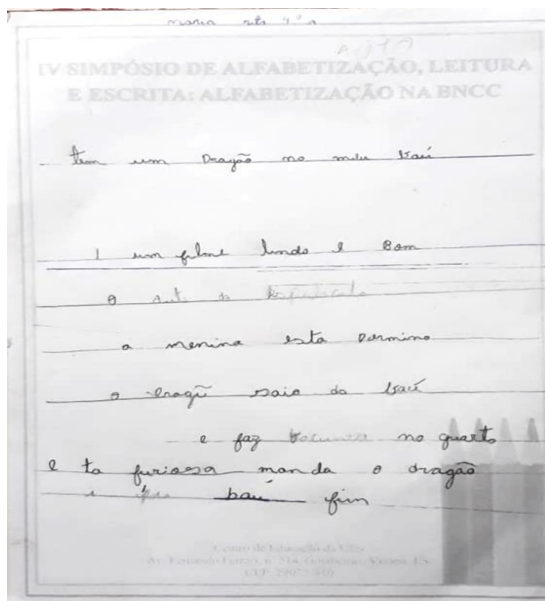 maria
IV SIMPÓSIO DE ALFABETIZAÇÃO, LEITURA
E ESCRITA: ALFABETIZAÇÃO NA BNCC
tem um Dragão no meu baú
1 um filme lindo e Bom
o
a menina esta dormino
o dragũ saio do baú
e faz no quarto
e ta furiosa manda o dragão
baú fim
Centro de Educação da Ufes
Av. Fernando Ferrari, n. 514, Goiabeiras, Vitória, ES